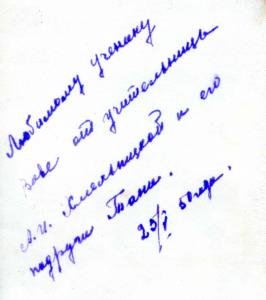 Любимому ученику
Вове от учительницы
А. И. Хмельницкой и его
подруги Тани.
25/V 50 года.